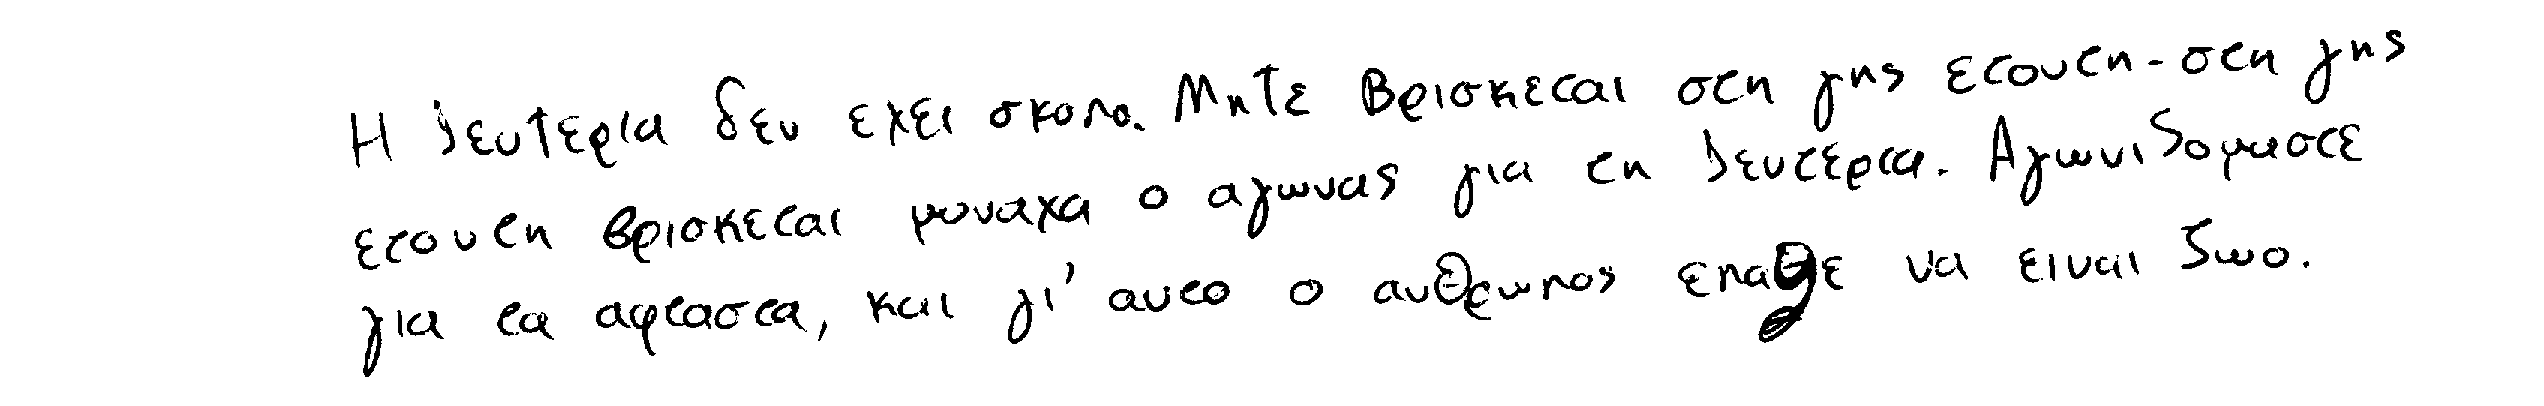 Η λευτερια δεν εχει σκοπο. Μητε βρισκεται στη γης ετουτη-στη γης
ετουτη βρισκεται μοναχα ο αγωνας για τη λευτερια. Αγωνιζομαστε
για τα αφταστα, και γι' αυτο ο ανθρωπος επαψε να ειναι ζωο.